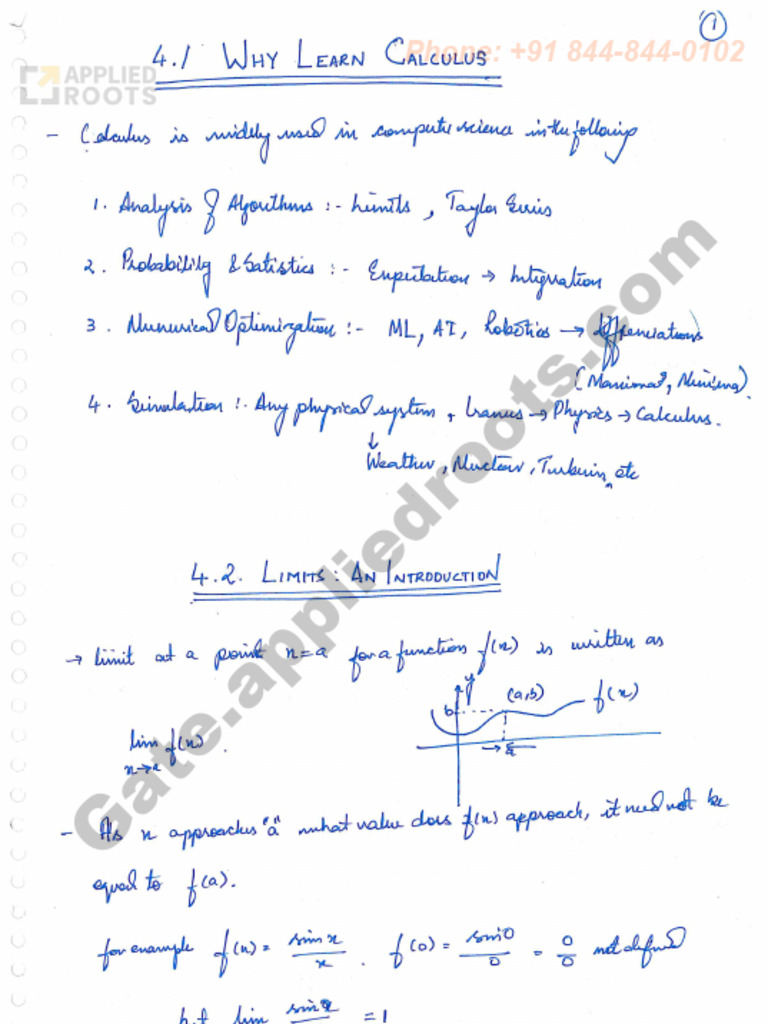 1
4.1 WHY LEARN CALCULUS
Phone: +91 844-844-0102
APPLIED
ROOTS
- Calculus is widely used in computer science in the following
1. Analysis of Algorithms :- Limits, Taylor Series
2. Probability & Statistics :- Expectation → Integration
3. Numerical Optimization :- ML, AI, Robotics → differentiations
(Maxima, Minima).
4. Simulation :- Any physical system → Physics → Calculus.
↓
Weather, Nuclear, Turbine, etc
4.2. LIMITS: AN INTRODUCTION
→ limit at a point x=a for a function f(x) is written as
y
b (a,b) f(x)
lim f(x).
x→a
→ a ←
- As x approaches "a" what value does f(x) approach, it need not be
equal to f(a).
for example f(x) = sin x / x . f(0) = sin 0 / 0 = 0/0 not defined
but lim sin x = 1
Gate.appliedroots.com